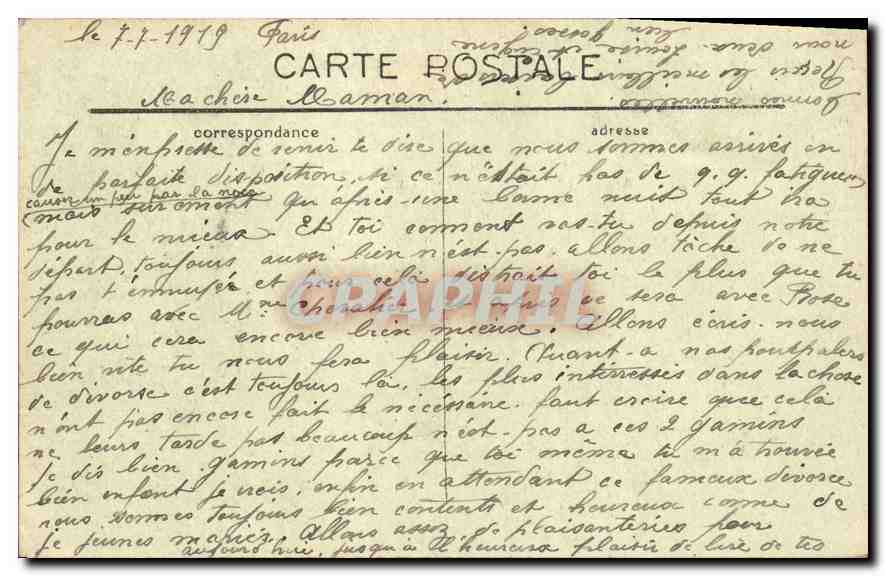 le 7-7-1919 Paris
CARTE POSTALE
Ma chère Maman.
correspondance
adresse
Je m'enpresse de venir te dire que nous sommes arrivés en
de parfaite disposition, si ce n'était pas de q.q. fatigues
causer un peu par la noce
(mais surement qu'après une bonne nuit tout ira
pour le mieux. Et toi comment vas-tu depuis notre
départ, toujours aussi bien n'est-pas, allons tâche de ne
pas t'ennuyée et pour celà distrait toi le plus que tu
pourras avec Mme Chevalier et après ce sera avec Rose
ce qui cera encore bien mieux. Allons écris-nous
bien vite tu nous fera plaisir. Quant-a nos pourpalers
de divorse c'est toujours là, les plus interressés dans la chose
n'ont pas encore fait le nécéssaire. faut croire que celà
ne leurs tarde pas beaucoup n'est-pas a ces 2 gamins
Je dis bien gamins parce que toi même tu m'à trouvée
bien enfant je crois, enfin en attendant ce fameux divorce
nous sommes toujours bien contents et heureux comme de
je jeunes mariez. Allons assez de plaisanteries pour
aujourd'hui, jusqu'à l'heureux plaisir de lire de tes
bonnes nouvelles.
Reçois les meilleurs
nous deux. Louise et Eugène
CPARAPHIL